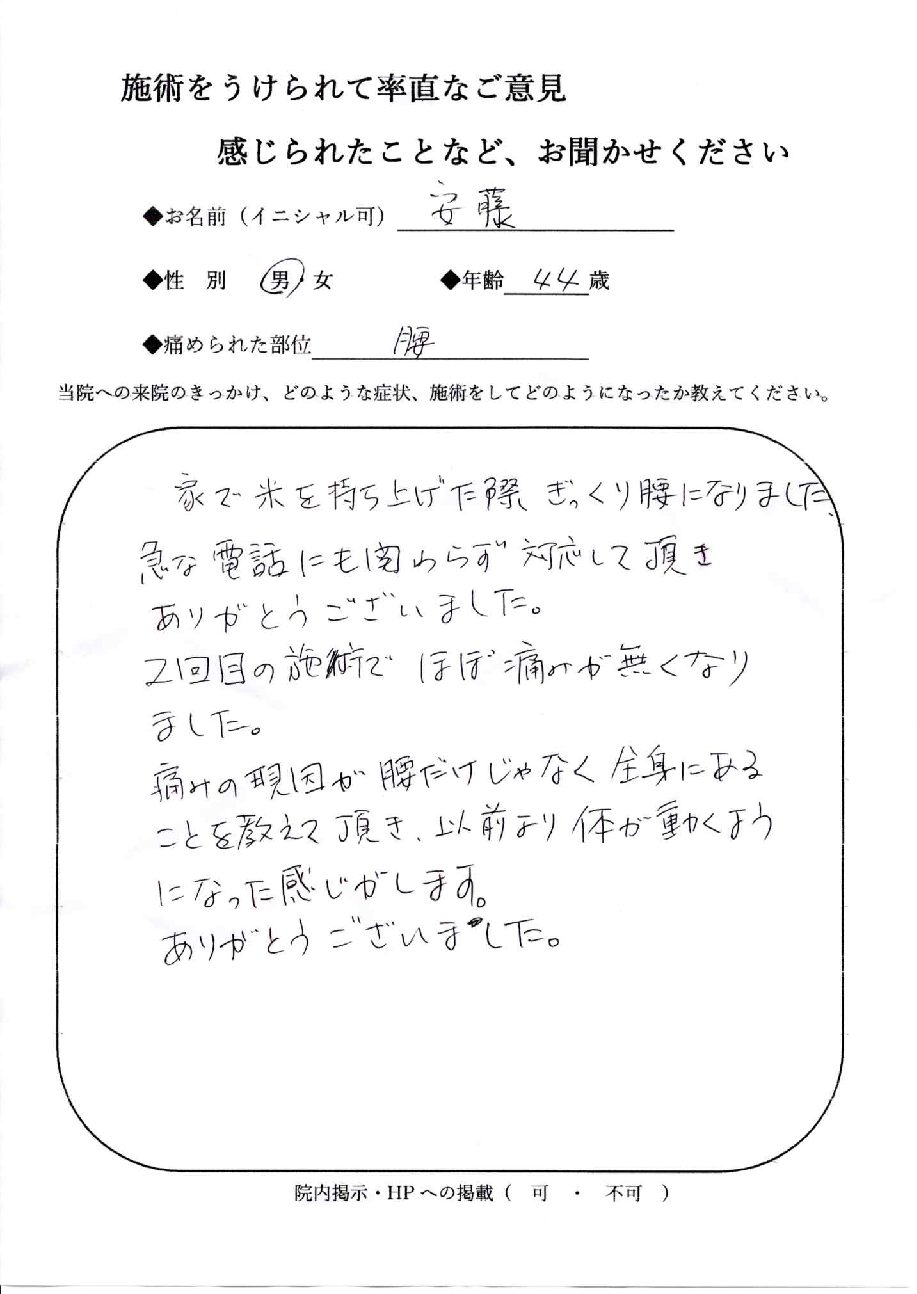 施術をうけられて率直なご意見
感じられたことなど、お聞かせください
◆お名前（イニシャル可） 安藤
◆性 別 男・女 ◆年齢 44 歳
◆痛められた部位 腰
当院への来院のきっかけ、どのような症状、施術をしてどのようになったか教えてください。
家で米を持ち上げた際、ぎっくり腰になりました、
急な電話にも関わらず対応して頂き
ありがとうございました。
2回目の施術でほぼ痛みが無くなり
ました。
痛みの現因が腰だけじゃなく全身にある
ことを教えて頂き、以前より体が動くよう
になった感じがします。
ありがとうございました。
院内掲示・HPへの掲載（ 可 ・ 不可 ）